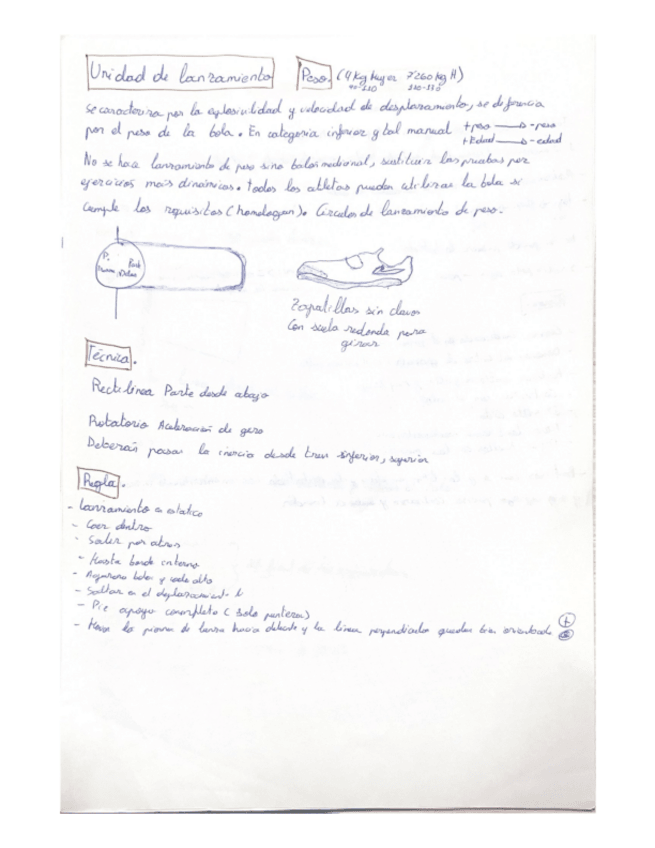 Unidad de lanzamiento Peso. (4 Kg Mujer 7'260 kg H)
90-110 110-130
se caracteriza por la explosividad y velocidad de desplazamiento, se diferencia
por el peso de la bola. En categoria inferior y tal manual +peso → -peso
+Edad → -edad
No se hace lanzamiento de peso sino balón medicinal, sustituir las pruebas por
ejercicios mais dinámicos. todos los atletas pueden utilizar la bola si
cumple los requisitos (homologan). Circulos de lanzamiento de peso.
P.
Zapatillas sin clavos
Con suela redonda para
girar
Técnica.
Rectilinea Parte desde abajo
Rotatorio Aceleración de giro
Deberán pasar la inercia desde tren inferior, superior
Regla.
- Lanzamiento estatico
- Caer dentro
- Salir por atras
- Hasta borde interno
- bola y codo alto
- Saltar en el desplazamient
- Pie apoyo completo (solo puntera)
- la pierna de lanza hacia delante y la linea perpendicular quedan bien orientada +